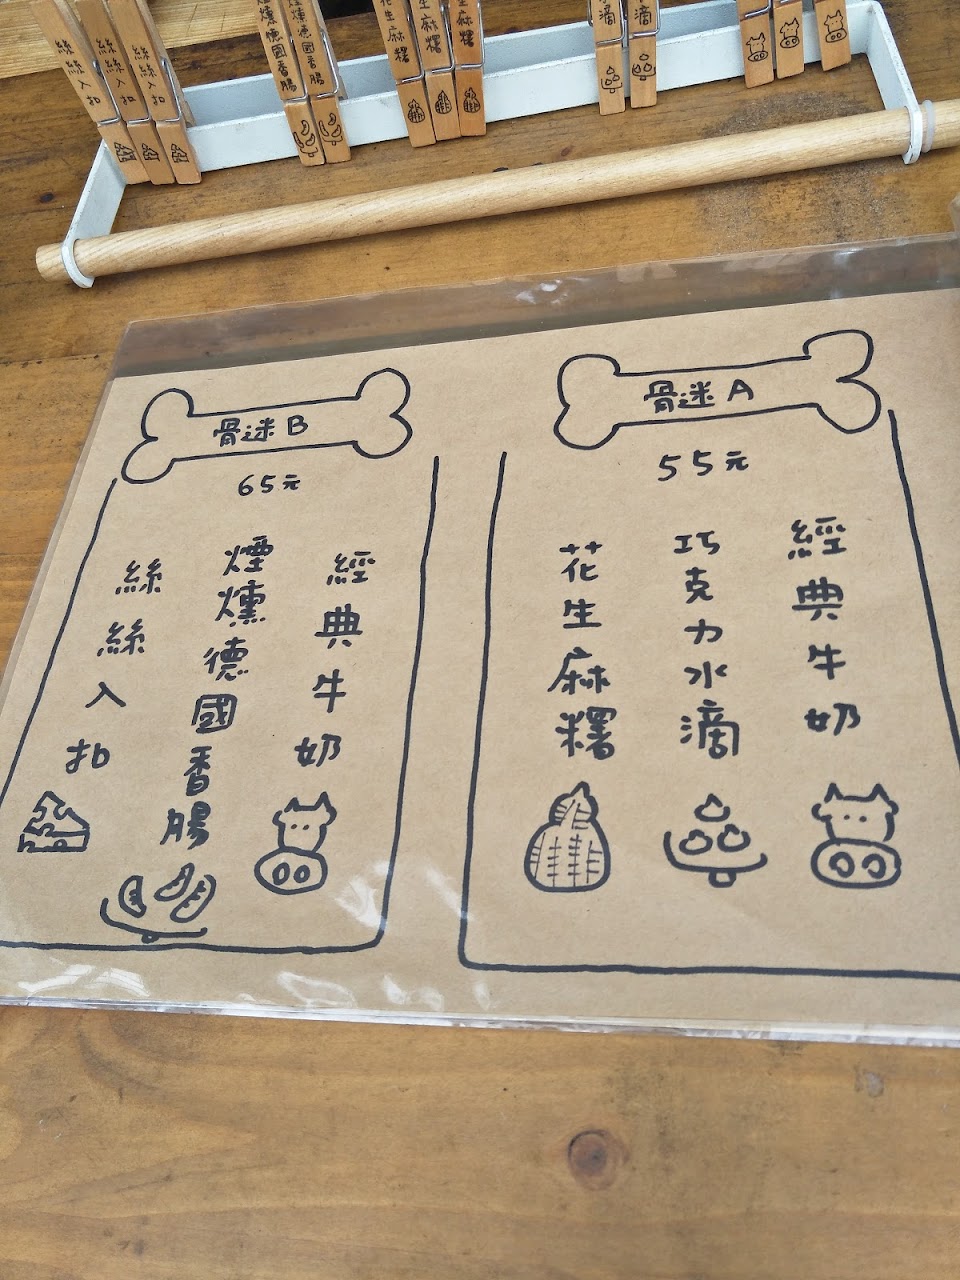 絲絲入扣
絲絲入扣
絲絲入扣
煙燻德國香腸
煙燻德國香腸
花生麻糬
生麻糬
生麻糬
滴
滴
骨迷 B
65元
經典牛奶
煙燻德國香腸
絲絲入扣
骨迷 A
55元
經典牛奶
巧克力水滴
花生麻糬